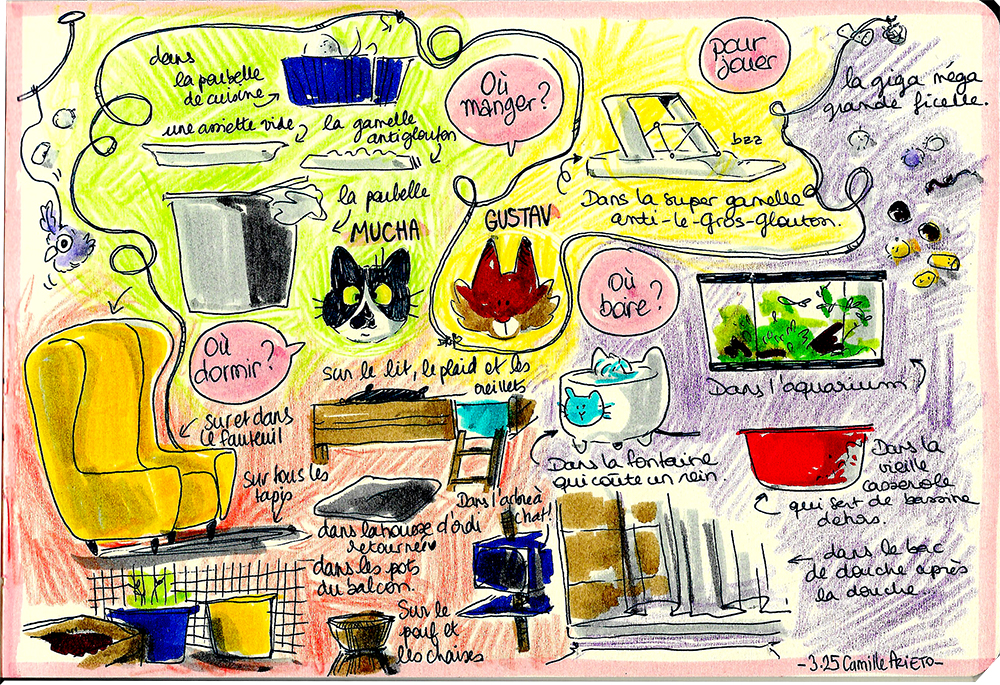 dans
la poubelle
de cuisine
une assiette vide
la gamelle
antiglouton
la poubelle
MUCHA
GUSTAV
Où
manger?
pour
jouer
la giga méga
grande ficelle.
bzz
Dans la super gamelle
anti-le-gros-glouton.
Où
boire?
Dans l'aquarium
Dans la fontaine
qui coûte un rein.
Dans la
vieille
casserole
qui sert de bassine
dehors.
dans le bac
de douche après
la douche
Où
dormir?
sur et dans
le fauteuil
sur tous les
tapis
sur le lit, le plaid et les
oeillets
Dans l'arbre à
chat!
dans la housse d'ordi
retournée
dans les pots
du balcon.
Sur le
pouf et
les chaises
-3.25 Camille ARIETO-